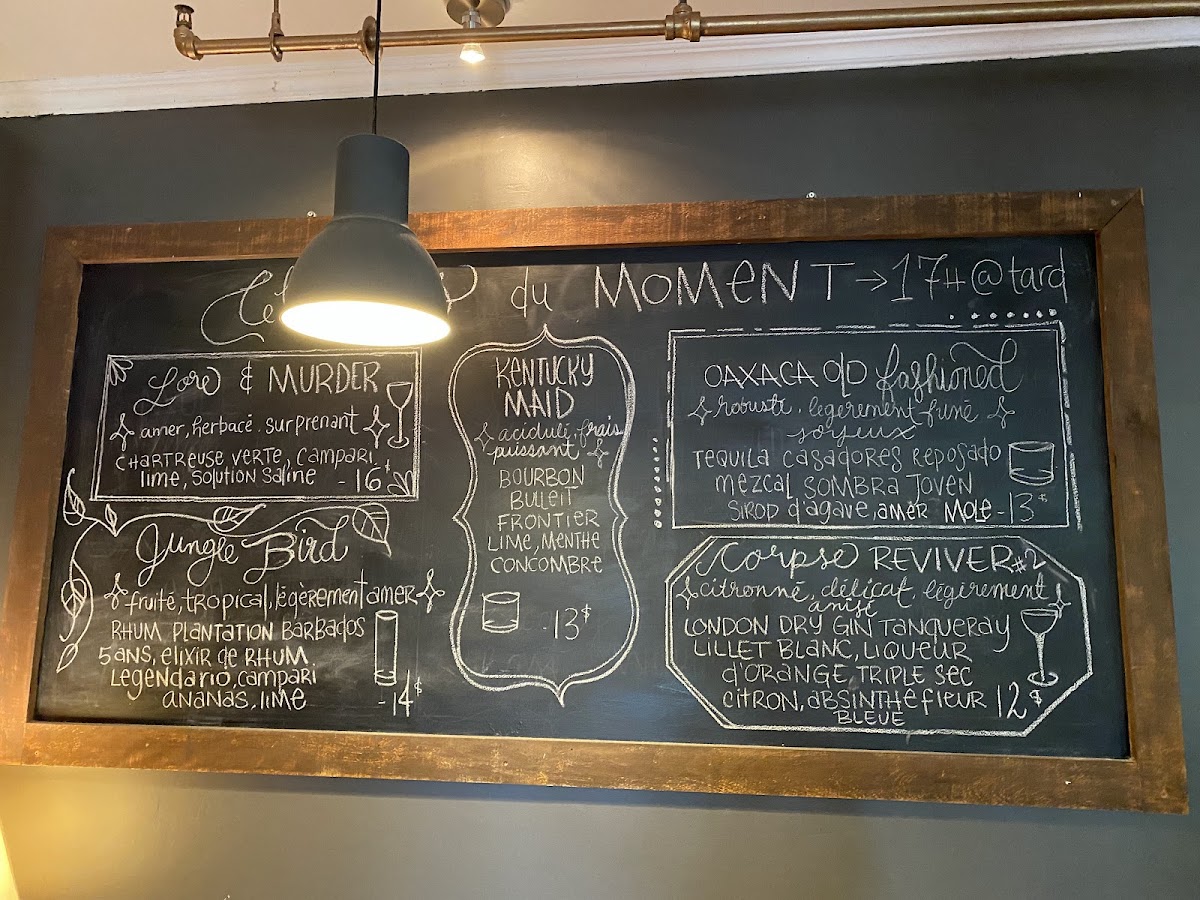 du MOMENT → 17H @ tard
Love & MURDER
amer, herbacé. surprenant
CHARTREUSE VERTE, CAMPARI,
LIME, SOLUTION SALINE - 16$
Jungle Bird
fruité, tropical, légèrement amer
RHUM PLANTATION BARBADOS
5 ANS, ELIXIR de RHUM
LEGENDARIO, CAMPARI
ANANAS, LIME - 14$
KENTUCKY
MAID
acidulé, frais
puissant
BOURBON
BULLEIT
FRONTIER
LIME, MENTHE
CONCOMBRE
- 13$
OAXACA OlD fashioned
robuste. légèrement fumé
soyeux
TEQUILA CASADORES REPOSADO
MEZCAL SOMBRA JOVEN
SIROP d'AGAVE, AMER MOLE - 13$
Corpse REVIVER #2
citronné, délicat, légèrement
anisé
LONDON DRY GIN TANQUERAY
LILLET BLANC, LIQUEUR
d'ORANGE TRIPLE SEC
CITRON, ABSINTHE FLEUR
BLEUE 12$